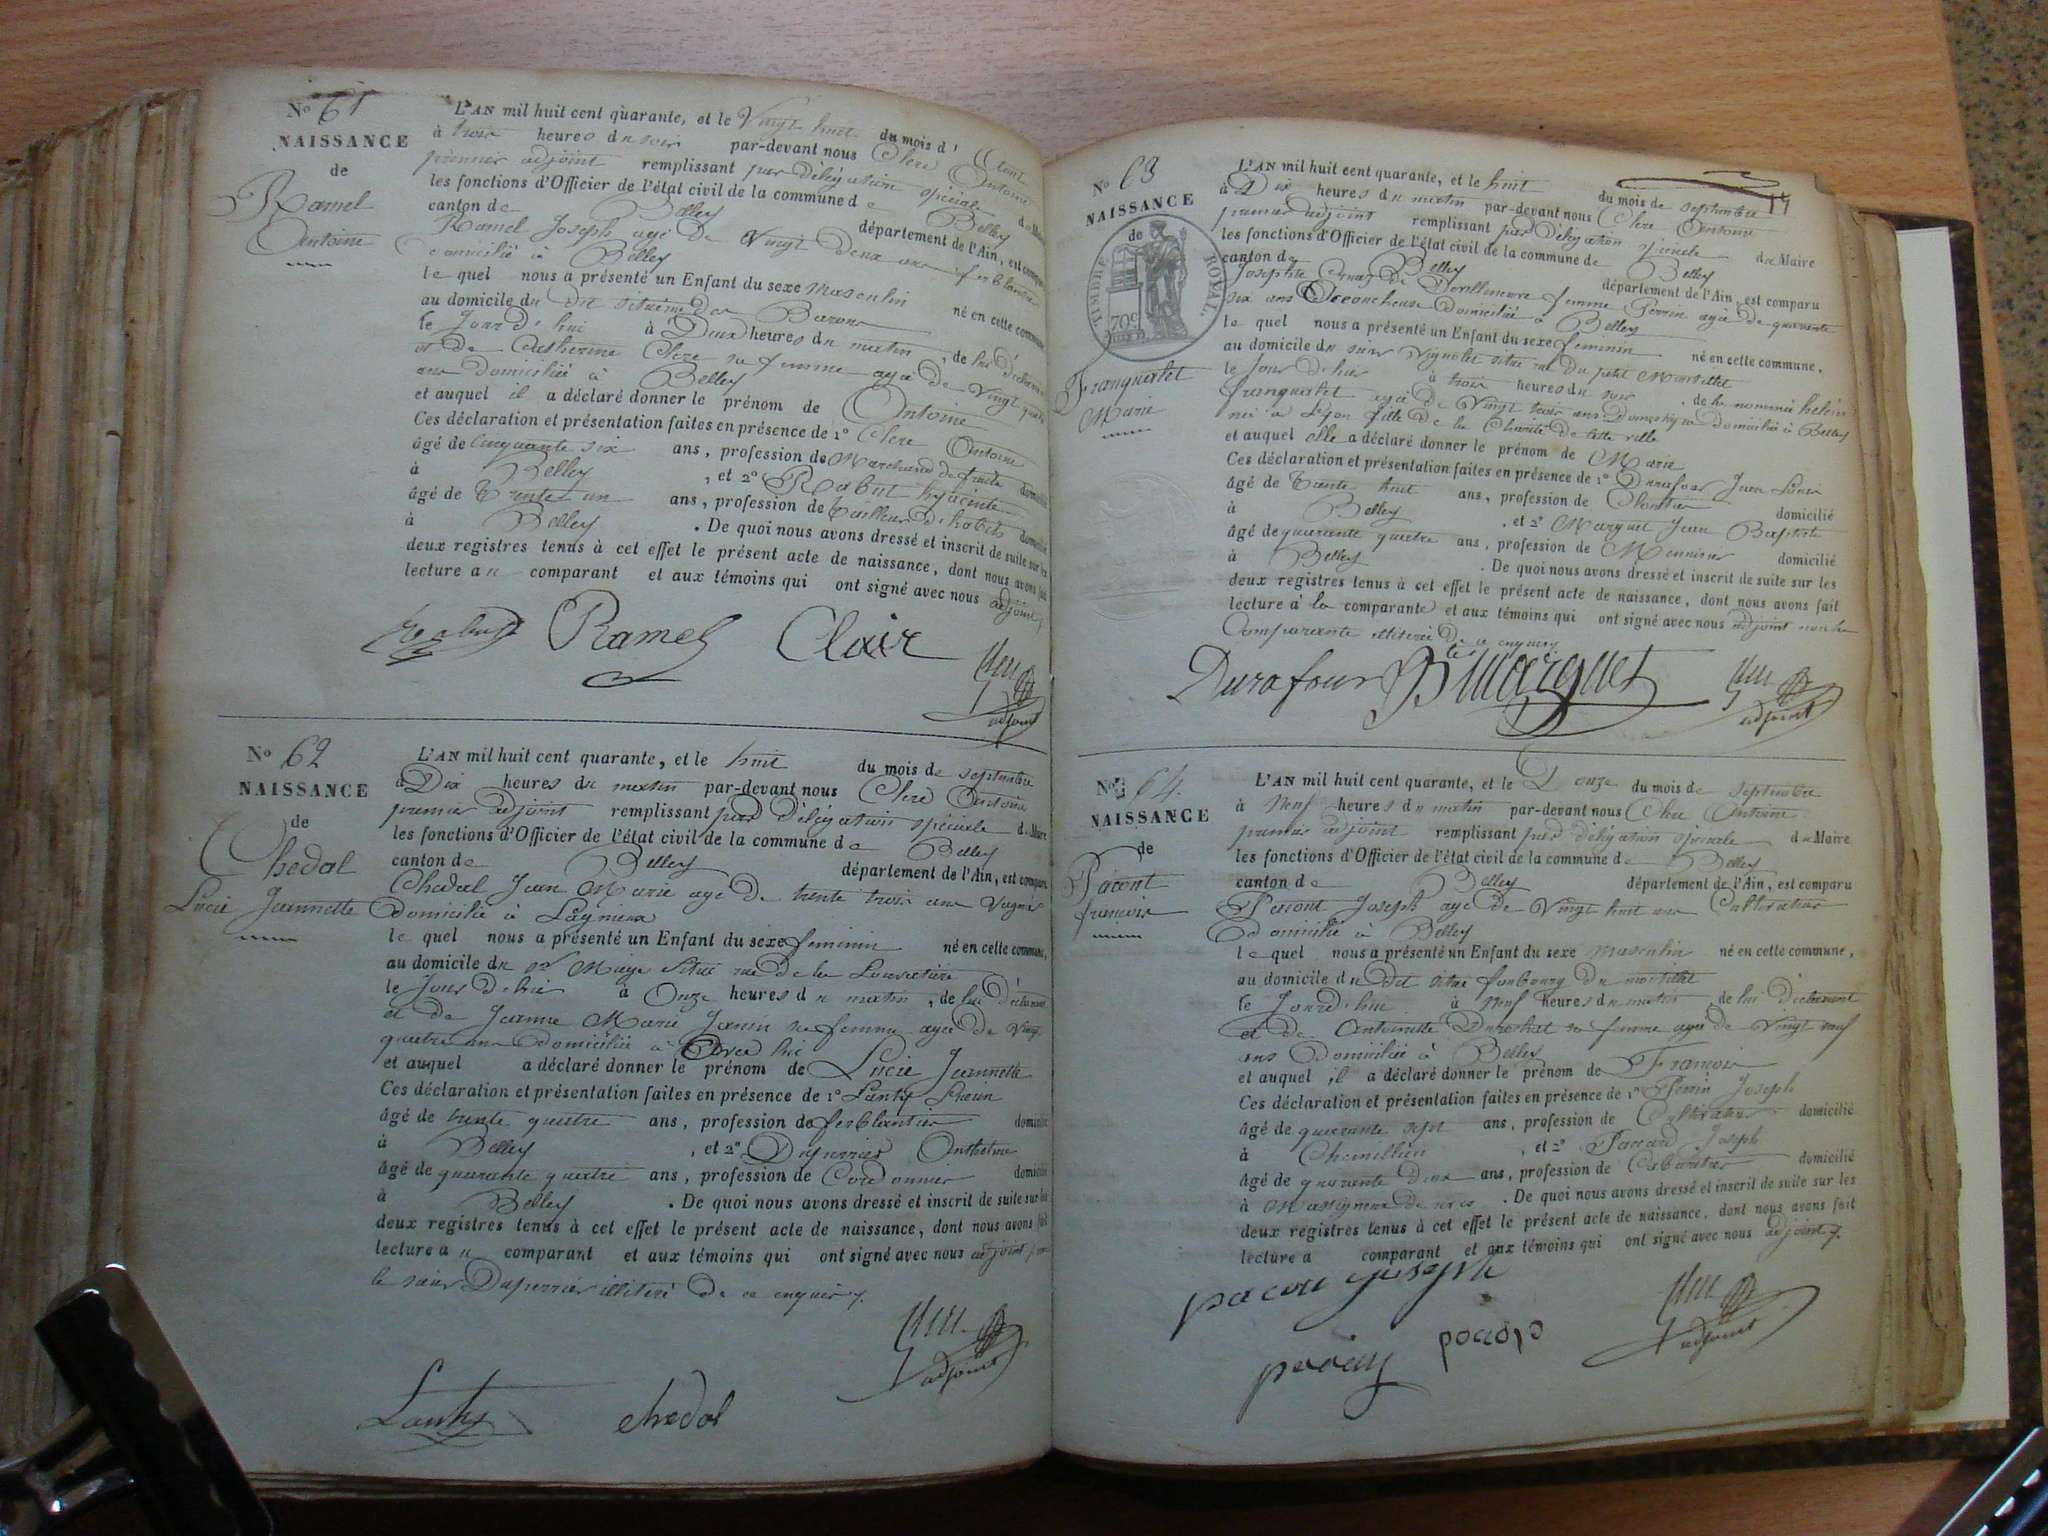 N° 61
NAISSANCE
de
Ramel
Antoine
L'AN mil huit cent quarante, et le Vingt huit du mois d'Aout
à trois heures du soir par-devant nous Clerc Antoine
premier adjoint remplissant par délégation spéciale du Maire
les fonctions d'Officier de l'état civil de la commune de Belley
canton de Belley département de l'Ain, est comparu
Ramel Joseph agé de Vingt deux ans ferblantier
domicilié à Belley
le quel nous a présenté un Enfant du sexe masculin né en cette commune
au domicile du dit situé
le Jour d'hui à Deux heures du matin, de lui déclarant
et de Catherine Clere sa femme agée de Vingt quatre
ans domiciliée à Belley
et auquel il a déclaré donner le prénom de Antoine
Ces déclaration et présentation faites en présence de 1° Clere Antoine
âgé de Cinquante six ans, profession de Marchand de domicilié
à Belley, et 2° Rabut hyacinte
âgé de Trente un ans, profession de tailleur d'habits domicilié
à Belley. De quoi nous avons dressé et inscrit de suite sur les
deux registres tenus à cet effet le présent acte de naissance, dont nous avons fait
lecture au comparant et aux témoins qui ont signé avec nous adjoint
Rabut Ramel Clair
adjoint
N° 62
NAISSANCE
de
Chedal
Lucie Jeannette
L'AN mil huit cent quarante, et le huit du mois de septembre
à Dix heures du matin par-devant nous Clerc Antoine
premier adjoint remplissant par Délégation spéciale du Maire
les fonctions d'Officier de l'état civil de la commune de Belley
canton de Belley département de l'Ain, est comparu
Chedal Jean Marie agé de trente trois ans
Domicilié à Lagnieux
le quel nous a présenté un Enfant du sexe feminin né en cette commune,
au domicile du sr situé rue de la
le Jour d'hier à Onze heures du matin, de lui déclarant
et de Jeanne Marie Janin sa femme agée de Vingt
quatre ans Domiciliée à avec lui
et auquel a déclaré donner le prénom de Lucie Jeannette
Ces déclaration et présentation faites en présence de 1° Lanty
âgé de trente quatre ans, profession de ferblantier domicilié
à Belley, et 2° Duperrier Anthelme
âgé de quarante quatre ans, profession de Cordonnier domicilié
à Belley. De quoi nous avons dressé et inscrit de suite sur les
deux registres tenus à cet effet le présent acte de naissance, dont nous avons fait
lecture au comparant et aux témoins qui ont signé avec nous adjoint
le sieur Duperrier illitéré de ce enquis
adjoint
Lanty chedal
N° 63
NAISSANCE
de
TIMBRE ROYAL
70c
Franquelet
Marie
L'AN mil huit cent quarante, et le huit du mois de septembre
à Dix heures du matin par-devant nous Clerc Antoine
premier adjoint remplissant par Délégation spéciale du Maire
les fonctions d'Officier de l'état civil de la commune de Belley
canton de Belley département de l'Ain, est comparu
Josephte femme Perrin agée de quarante
six ans Accoucheuse Domiciliée à Belley
le quel nous a présenté un Enfant du sexe feminin né en cette commune,
au domicile du sieur Vignolet situé rue du petit
le Jour d'hier à trois heures du soir, de la nommée heleine
franquelet agée de Vingt trois ans Domestique Domiciliée à Belley
née à Lyon fille de la Charité de cette ville
et auquel elle a déclaré donner le prénom de Marie
Ces déclaration et présentation faites en présence de 1° Durafour Jean Louis
âgé de Trente huit ans, profession de domicilié
à Belley, et 2° Marguet Jean Baptiste
âgé de quarante quatre ans, profession de Menuisier domicilié
à Belley. De quoi nous avons dressé et inscrit de suite sur les
deux registres tenus à cet effet le présent acte de naissance, dont nous avons fait
lecture à la comparante et aux témoins qui ont signé avec nous adjoint non la
Comparante illiterée de ce enquise
Durafour JB Marguet
adjoint
N° 64
NAISSANCE
de
Pacout
francois
L'AN mil huit cent quarante, et le Douze du mois de septembre
à Neuf heures du matin par-devant nous Clerc Antoine
premier adjoint remplissant par délégation spéciale du Maire
les fonctions d'Officier de l'état civil de la commune de Belley
canton de Belley département de l'Ain, est comparu
Joseph agé de Vingt huit ans Cultivateur
Domicilié à Belley
le quel nous a présenté un Enfant du sexe masculin né en cette commune,
au domicile du Dit situé faubourg du
le Jourd'hui à Neuf heures du matin, de lui Déclarant
et de Antoinette sa femme agée de Vingt neuf
ans Domiciliée à Belley
et auquel il a déclaré donner le prénom de Francois
Ces déclaration et présentation faites en présence de 1° Perrin Joseph
âgé de quarante sept ans, profession de Cultivateur domicilié
à, et 2° Joseph
âgé de quarante Deux ans, profession de domicilié
à Massignieu de rives. De quoi nous avons dressé et inscrit de suite sur les
deux registres tenus à cet effet le présent acte de naissance, dont nous avons fait
lecture a comparant et aux témoins qui ont signé avec nous adjoint
pacou joseph
adjoint